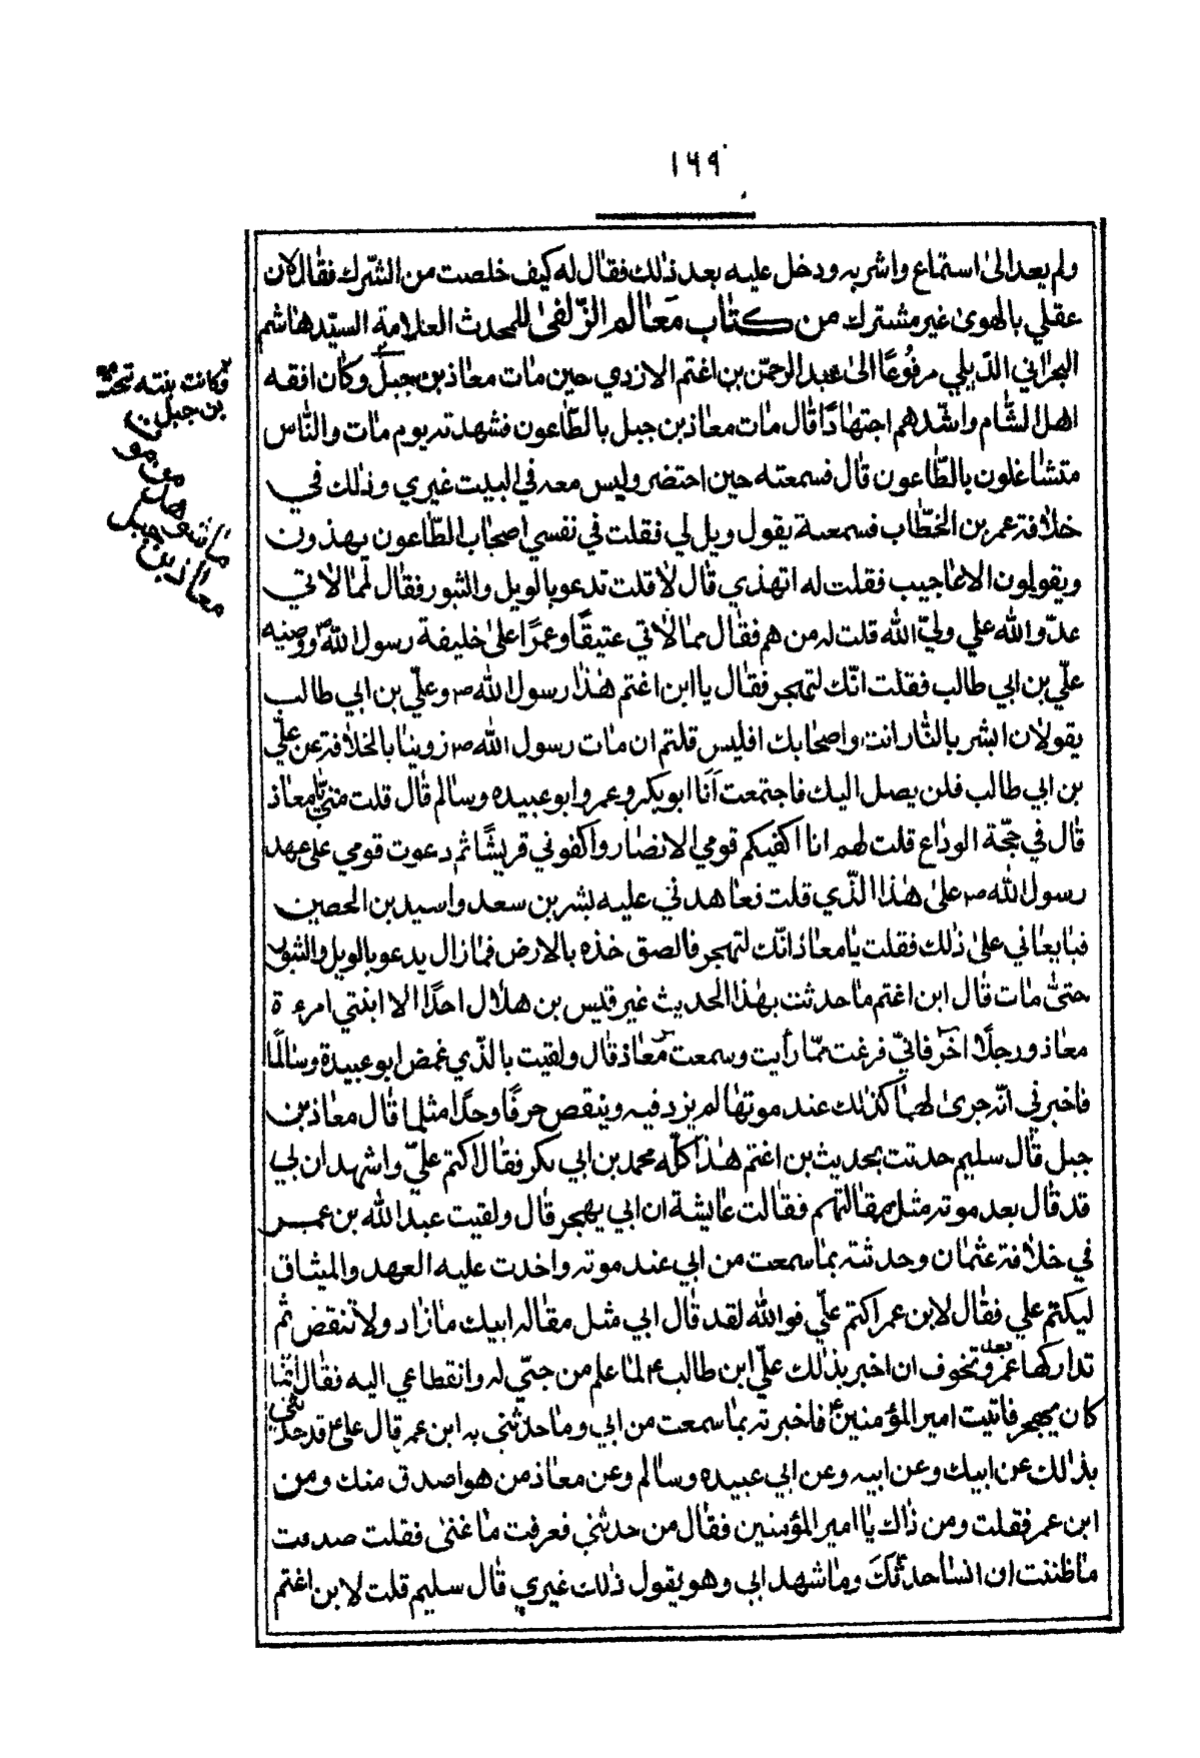 ١٦٩
ولم يعد الىٰ استماع واشربه ودخل عليه بعد ذٰلك فقال له كيف خلصت من الشّرك فقال لان
عقلي بالهوىٰ غير مشترك من كتاب معالم الزّلفىٰ للمحدث العلامة السيّد هاشم
البحراني الدّيلي مرفُوعًا الىٰ عبد الرحمّن بن اغتم الازدي حين مات معاذ بن جبل وكان افقه
اهل الشام واشّدهم اجتهادًا قال مات معاذ بن جبل بالطّاعون فشهدته يوم مات والنّاس
متشاغلون بالطّاعون قال فسمعته حين احتضر وليس معه في البيت غيري وذلك في
خلافة عمر بن الخطّاب فسمعته يقول ويل لي فقلت في نفسي اصحاب الطّاعون يهذون
ويقولون الاعاجيب فقلت له اتهذي قال لا قلت تدعو بالويل والثبور فقال لممالاتي
عدّو الله علي وليّ الله قلت له من هم فقال ممالاتي عتيقًا وعمرًا علىٰ خليفة رسول الله ص ووصيه
علّي بن ابي طالب فقلت انّك لتهجر فقال يا ابن اغتم هٰذا رسول الله ص وعلّي بن ابي طالب
يقولان ابشر بالنّار انت واصحابك افليس قلتم ان مات رسول الله ص زوينا بالخلافة عن علّي
بن ابي طالب فلن يصل اليك فاجتمعت اَنَا ابو بكر وعمر وابو عبيده وسالم قال قلت متىٰ يا معاذ
قال في حجّة الوداع قلت لهم انا اكفيكم قومي الانصار واكفوني قريشًا ثم دعوت قومي على عهد
رسول الله ص علىٰ هٰذا الذّي قلت فعاهدني عليه بشر بن سعد واسيد بن الحصين
فبايعاني علىٰ ذٰلك فقلت يا معاذ انّك لتهجر فالصق خذه بالارض فما زال يدعو بالويل والثبور
حتىّٰ مات قال ابن اغتم ما حدثت بهٰذا الحديث غير قيس بن هلال احدًا الا ابنتي امرءة
معاذ ورجلًا اخر فانيّ فرغت ممّا رأيت وسمعت من معاذ قال ولقيت بالذّي غمض ابو عبيدة وسالمًا
فاخبرني انّه جرىٰ لهما كذلك عند موتها لم يزد فيه وينقص حرفًا وحدًا مثلما قال معاذ بن
جبل قال سليم حدثت بحديث بن اغتم هٰذا كلّه محمد بن ابي بكر فقال اكتم عليّ واشهد ان ابي
قد قال بعد موته مثل مقالتهم فقالت عايشة ان ابي يهجر قال ولقيت عبد الله بن عمر
في خلافة عثمان وحدثته بما سمعت من ابي عند موته واخدت عليه العهد والميثاق
ليكتم علي فقال لابن عمر اكتم علّي فوالله لقد قال ابي مثل مقاله ابيك ما زاد ولا تنقض ثم
تداركها عمر بعد وتخوف ان اخبر بذلك علّي ابن طالب ع لما علم من حبّي له وانقطاعي اليه فقال انّما
كان يهجر فاتيت امير المؤمنينؑ فاخبرته بما سمعت من ابي وما حدثني به ابن عمر قال علي ع قد حدثني
بذلك عن ابيك وعن ابيه وعن ابي عبيده وسالم وعن معاذ من هو اصدق منك ومن
ابن عمر فقلت ومن ذاك يا امير المؤمنين فقال من حدثني فعرفت ما عنىٰ فقلت صدقت
ما ظننت ان انسا حدّثكَ وما شهد ابي وهو يقول ذلك غيري قال سليم قلت لابن اغتم
وكانت بنته تحت
بن جبل
من مو
ما شوهد
معاذ بن جبل